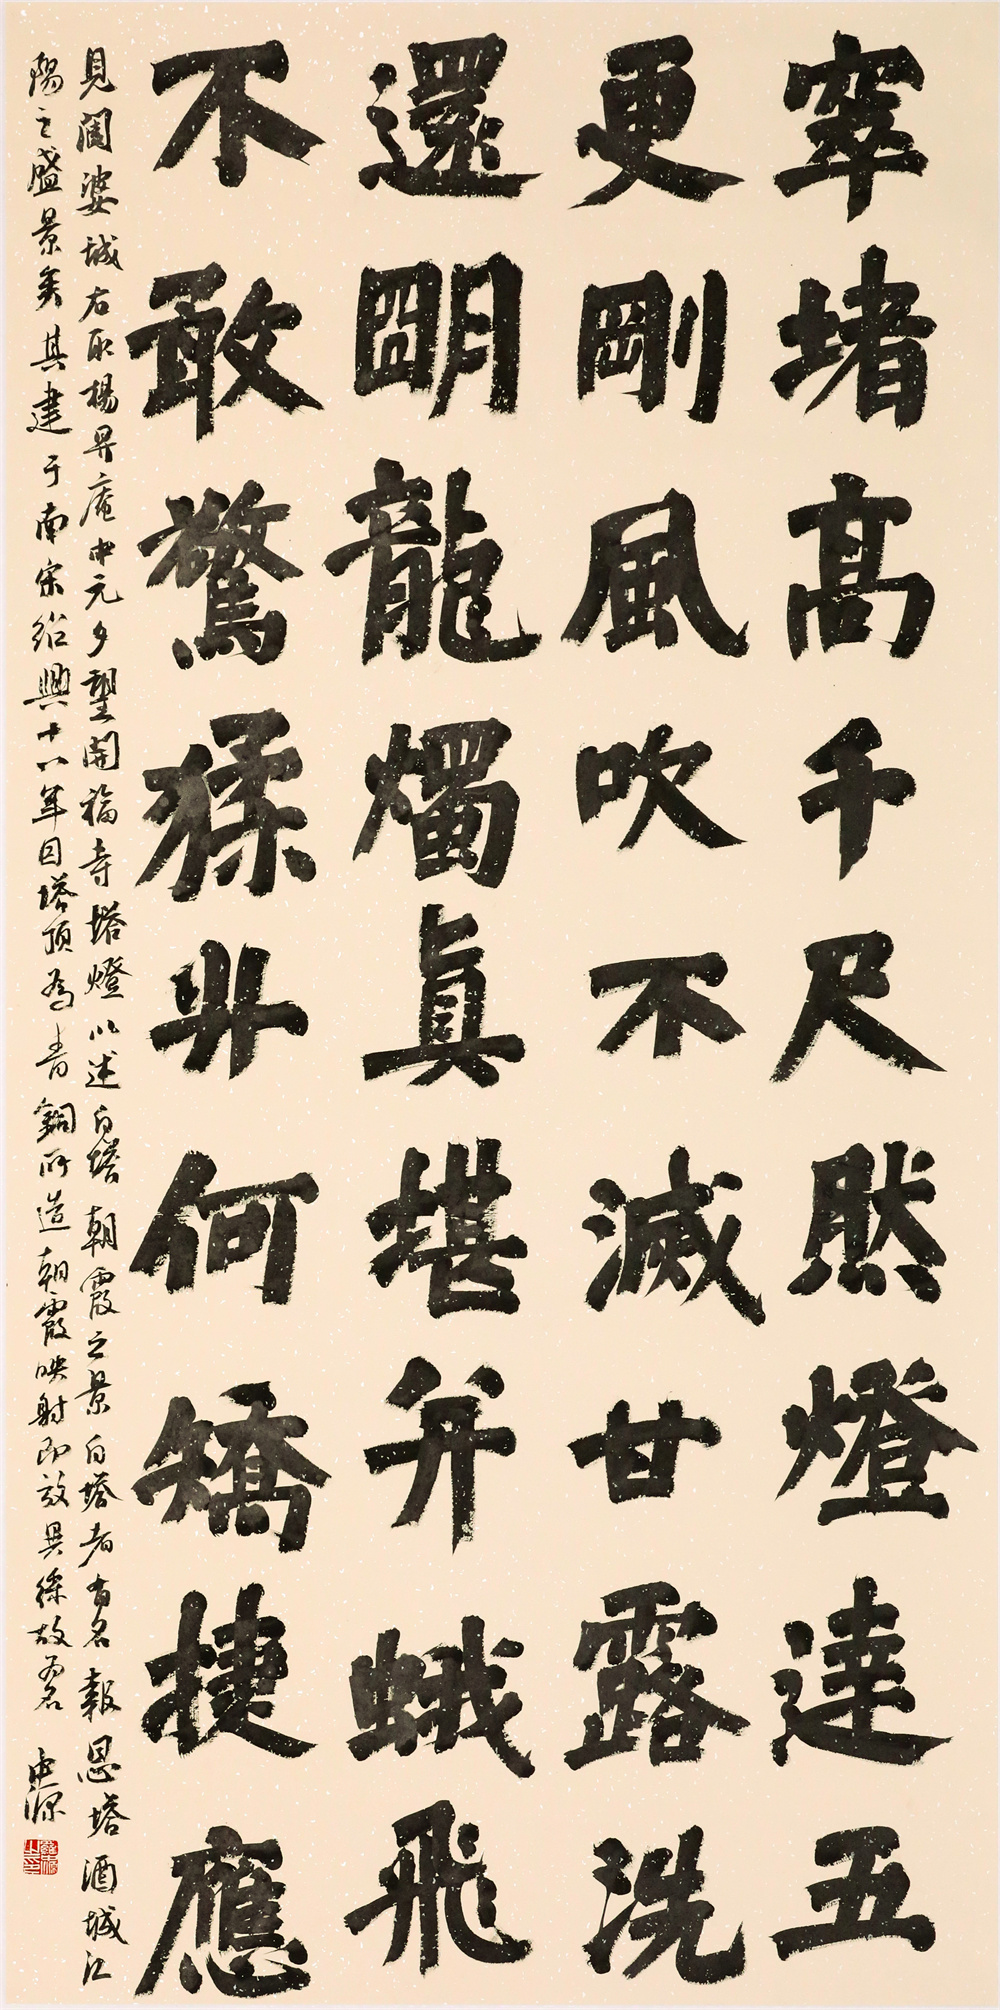 窣堵高千尺然燈達五
更剛風吹不滅廿露洗
還明龍燭真堪并蛾飛
不敢驚猱升何矯捷應
見闍婆城右取楊昇庵中元夕望開福寺塔燈以述白塔朝霞之景白塔者古名報恩塔酒城江
陽之盛景矣其建于南宋紹興十八年因塔頂為青銅所造朝霞映射即放異彩故名